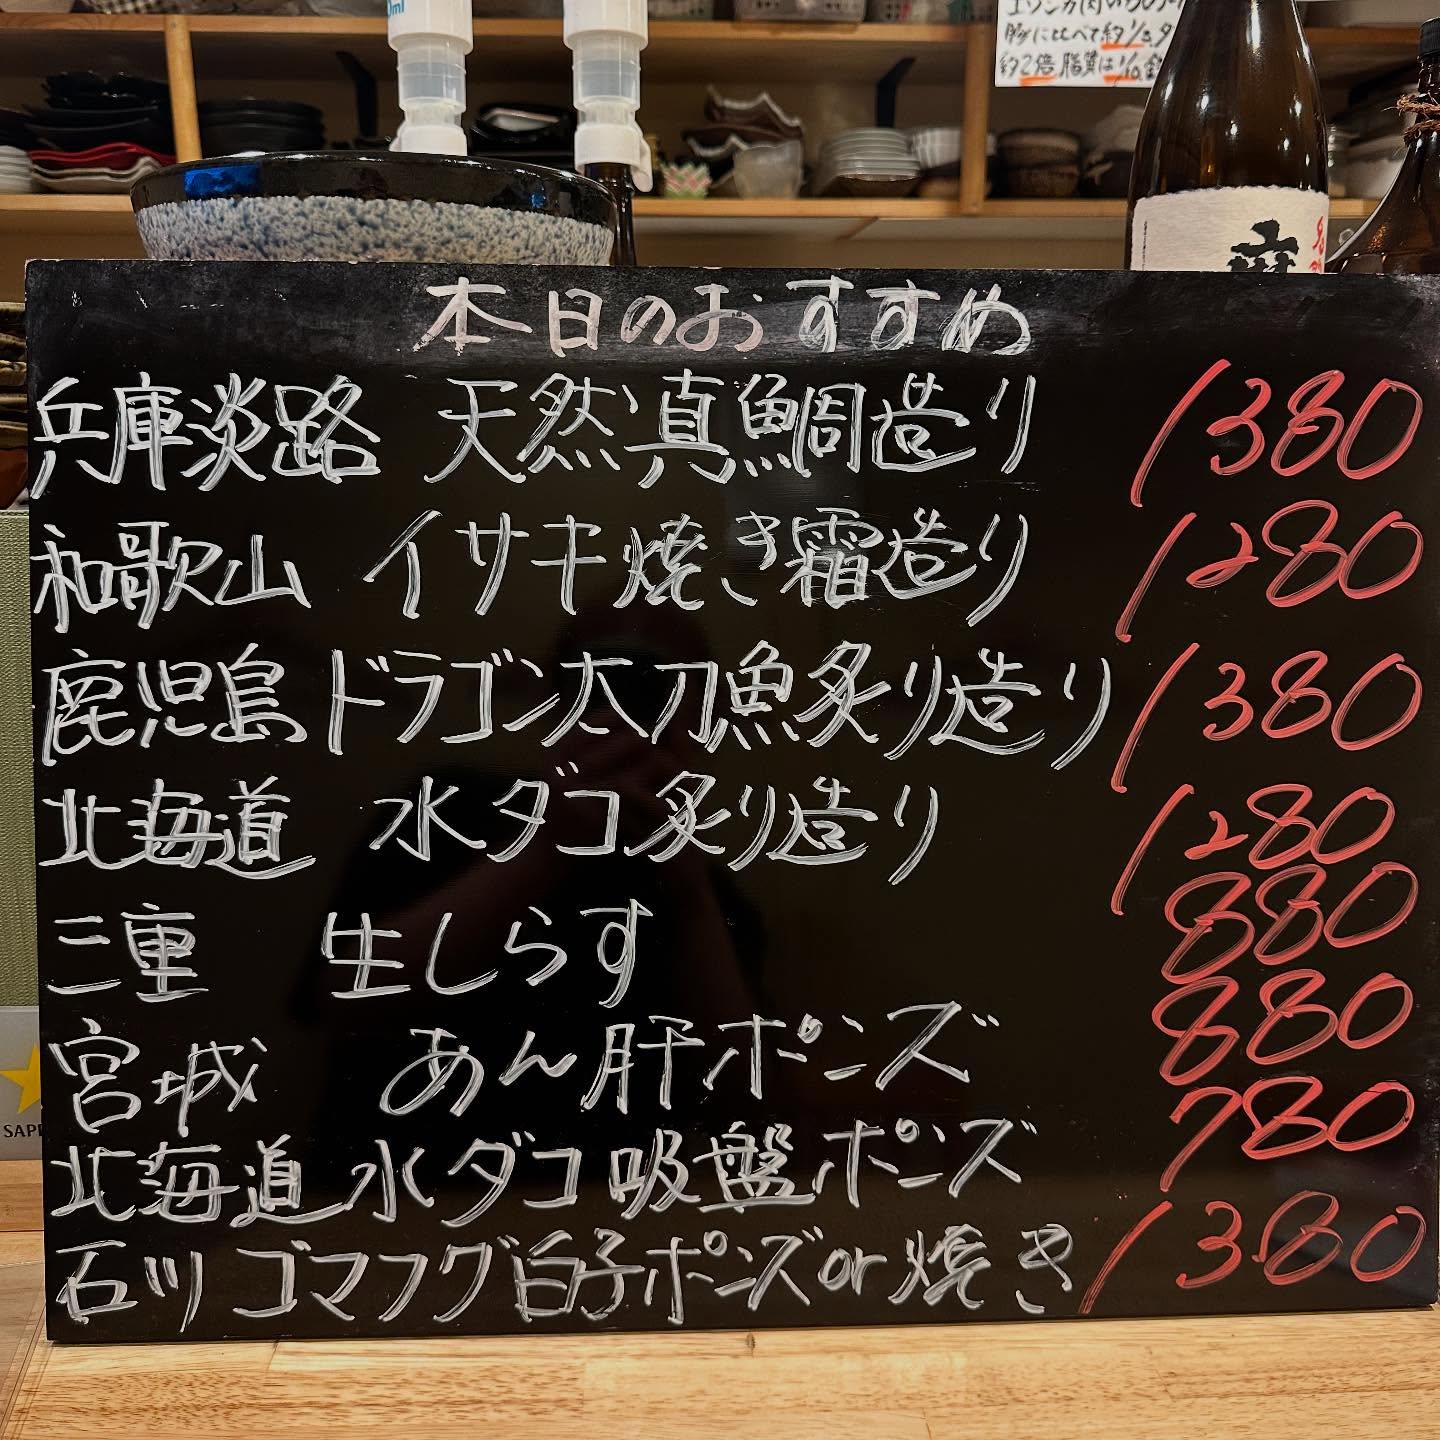 0ml
豚に比べて約1/3、
約2倍 脂質は1/10
本日のおすすめ
兵庫淡路 天然真鯛造り 1380
和歌山 イサキ焼き霜造り 1280
鹿児島 ドラゴン太刀魚炙り造り 1380
北海道 水ダコ炙り造り 1280
三重 生しらす 880
宮城 あん肝ポンズ 880
北海道 水ダコ吸盤ポンズ 780
石川 ゴマフグ白子ポンズor焼き 1380
SAPP